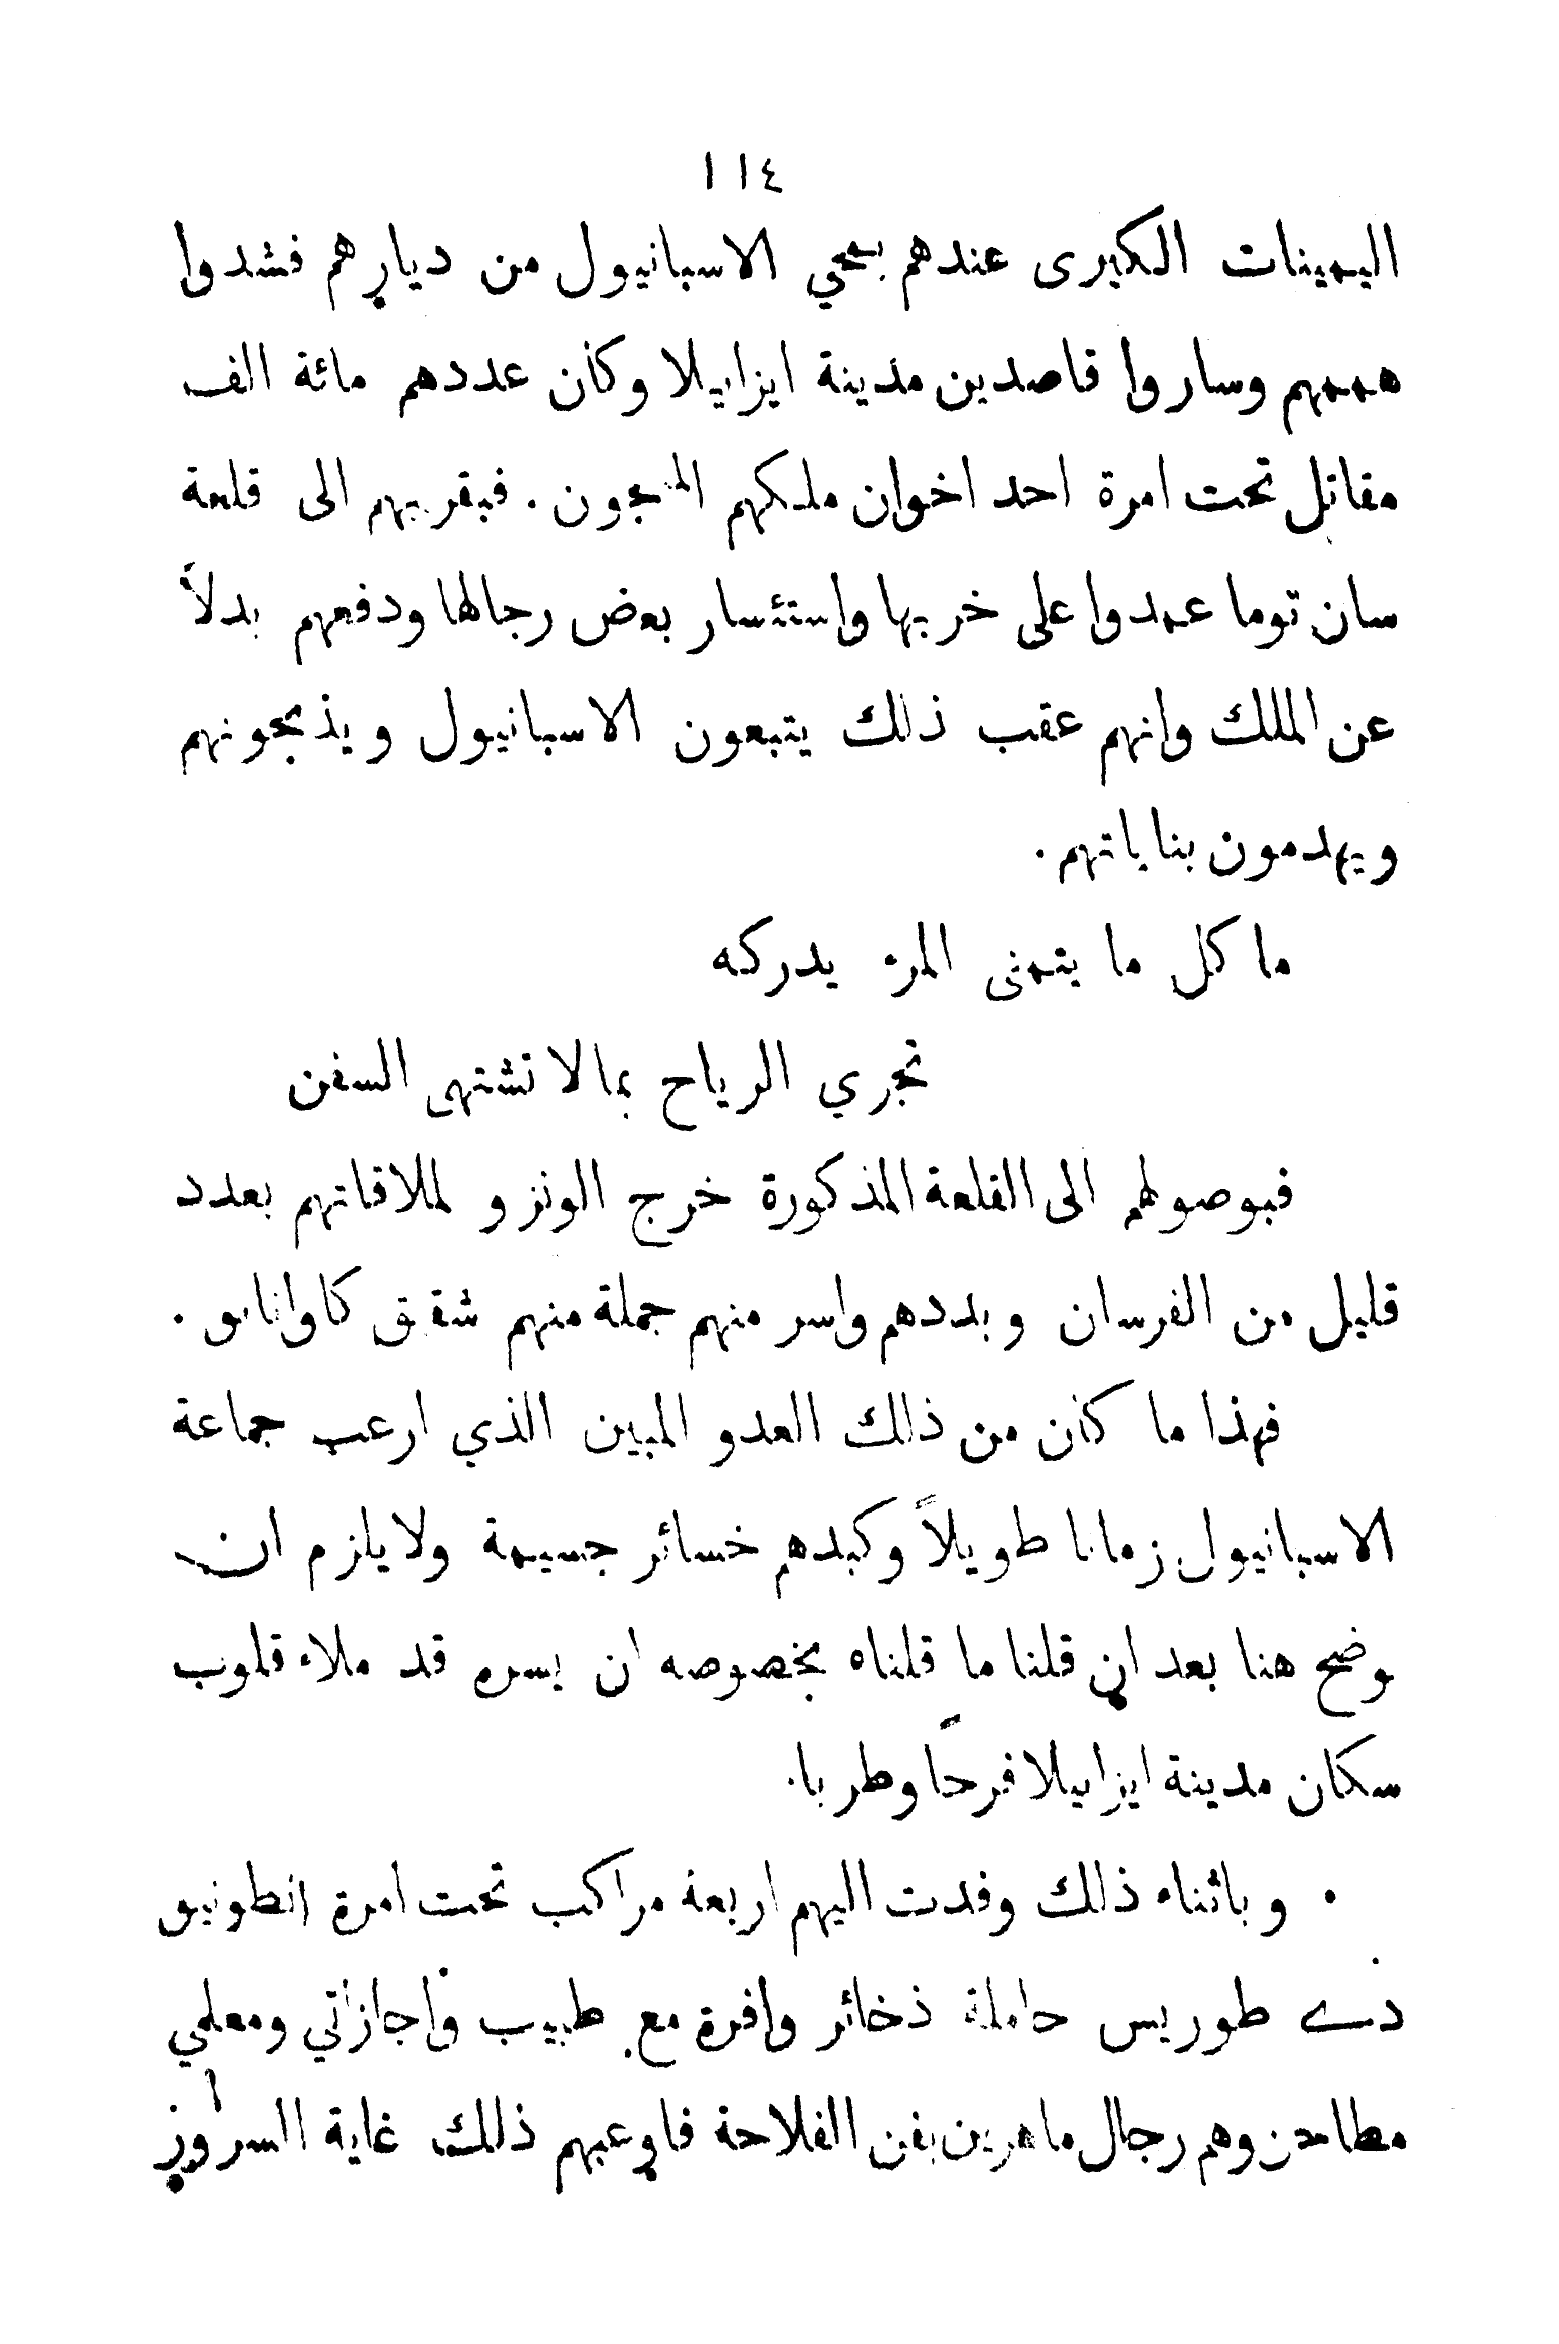 ١١٤
اليمينات الكبرى عندهم بمحي الاسبانيول من ديارهم فشدوا
هممهم وساروا قاصدين مدينة ايزابيلا وكان عددهم مائة الف
مقاتل تحت امرة احد اخوان ملكهم المسجون . فبقربهم الى قلعة
سان توما عمدوا على خربها واستئسار بعض رجالها ودفعهم بدلاً
عن الملك وانهم عقب ذلك يتبعون الاسبانيول ويذبحونهم
ويهدمون بناياتهم .
ما كل ما يتمنى المرء يدركه
تجري الرياح بما لا تشتهى السفن
فبوصولهم الى القلعة المذكورة خرج الونزو لملاقاتهم بعدد
قليل من الفرسان وبددهم واسر منهم جملة منهم شقيق كاوانابو .
فهذا ما كان من ذلك العدو المبين الذي ارعب جماعة
الاسبانيول زمانا طويلاً وكبدهم خسائر جسيمة ولا يلزم ان
نوضح هنا بعد ان قلنا ما قلناه بخصوصه ان يسره قد ملاء قلوب
سكان مدينة ايزابيلا فرحاً وطربا .
وباثناء ذلك وفدت اليهم اربعة مراكب تحت امرة انطونيو
دے طوريس حاملة ذخائر وافرة مع طبيب واجازاتي ومعلمي
مطاحن وهم رجال ماهرين بفن الفلاحة فاوعبهم ذلك غاية السرور